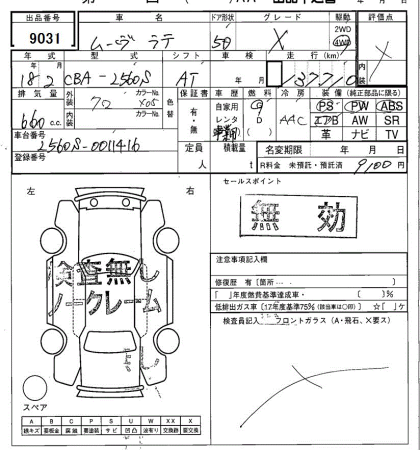 出品番号 車名 ドア形状 グレード 駆動 評価点
9031 ムーヴ ラテ 5D X 2WD 4WD ×
年式 型式 シフト 車検 走行(km) 内装
18 2 CBA-L560S AT 年 月 137710
排気量 外装 カラーNo. 色替 保証書 車歴 燃費 冷房 装備(純正部品に限る)
660 c.c. X05 有・無 自家用 レンタ G D AAC PS PW ABS
内装 カラーNo. エアB AW SR
車台番号 革 ナビ TV
L560S-0011416 定員 積載量 名変期限 年 月 日
登録番号 人 t R料金 未預託・預託済 9100 円
左 右 セールスポイント
無効
検査無し
ノークレーム
注意事項記入欄
修復歴 有[箇所… ]
「 」年度燃費基準達成車・[ ]%
低排出ガス車[17年度基準75%(該当車は○印)]☆[ ]ケ
検査員記入 フロントガラス(A・飛石、×要ス)
スペア
A B C P S U W XX X
線キズ 要板金 腐蝕 要塗装 サビ 凹凸 波有り 交換跡 要交換